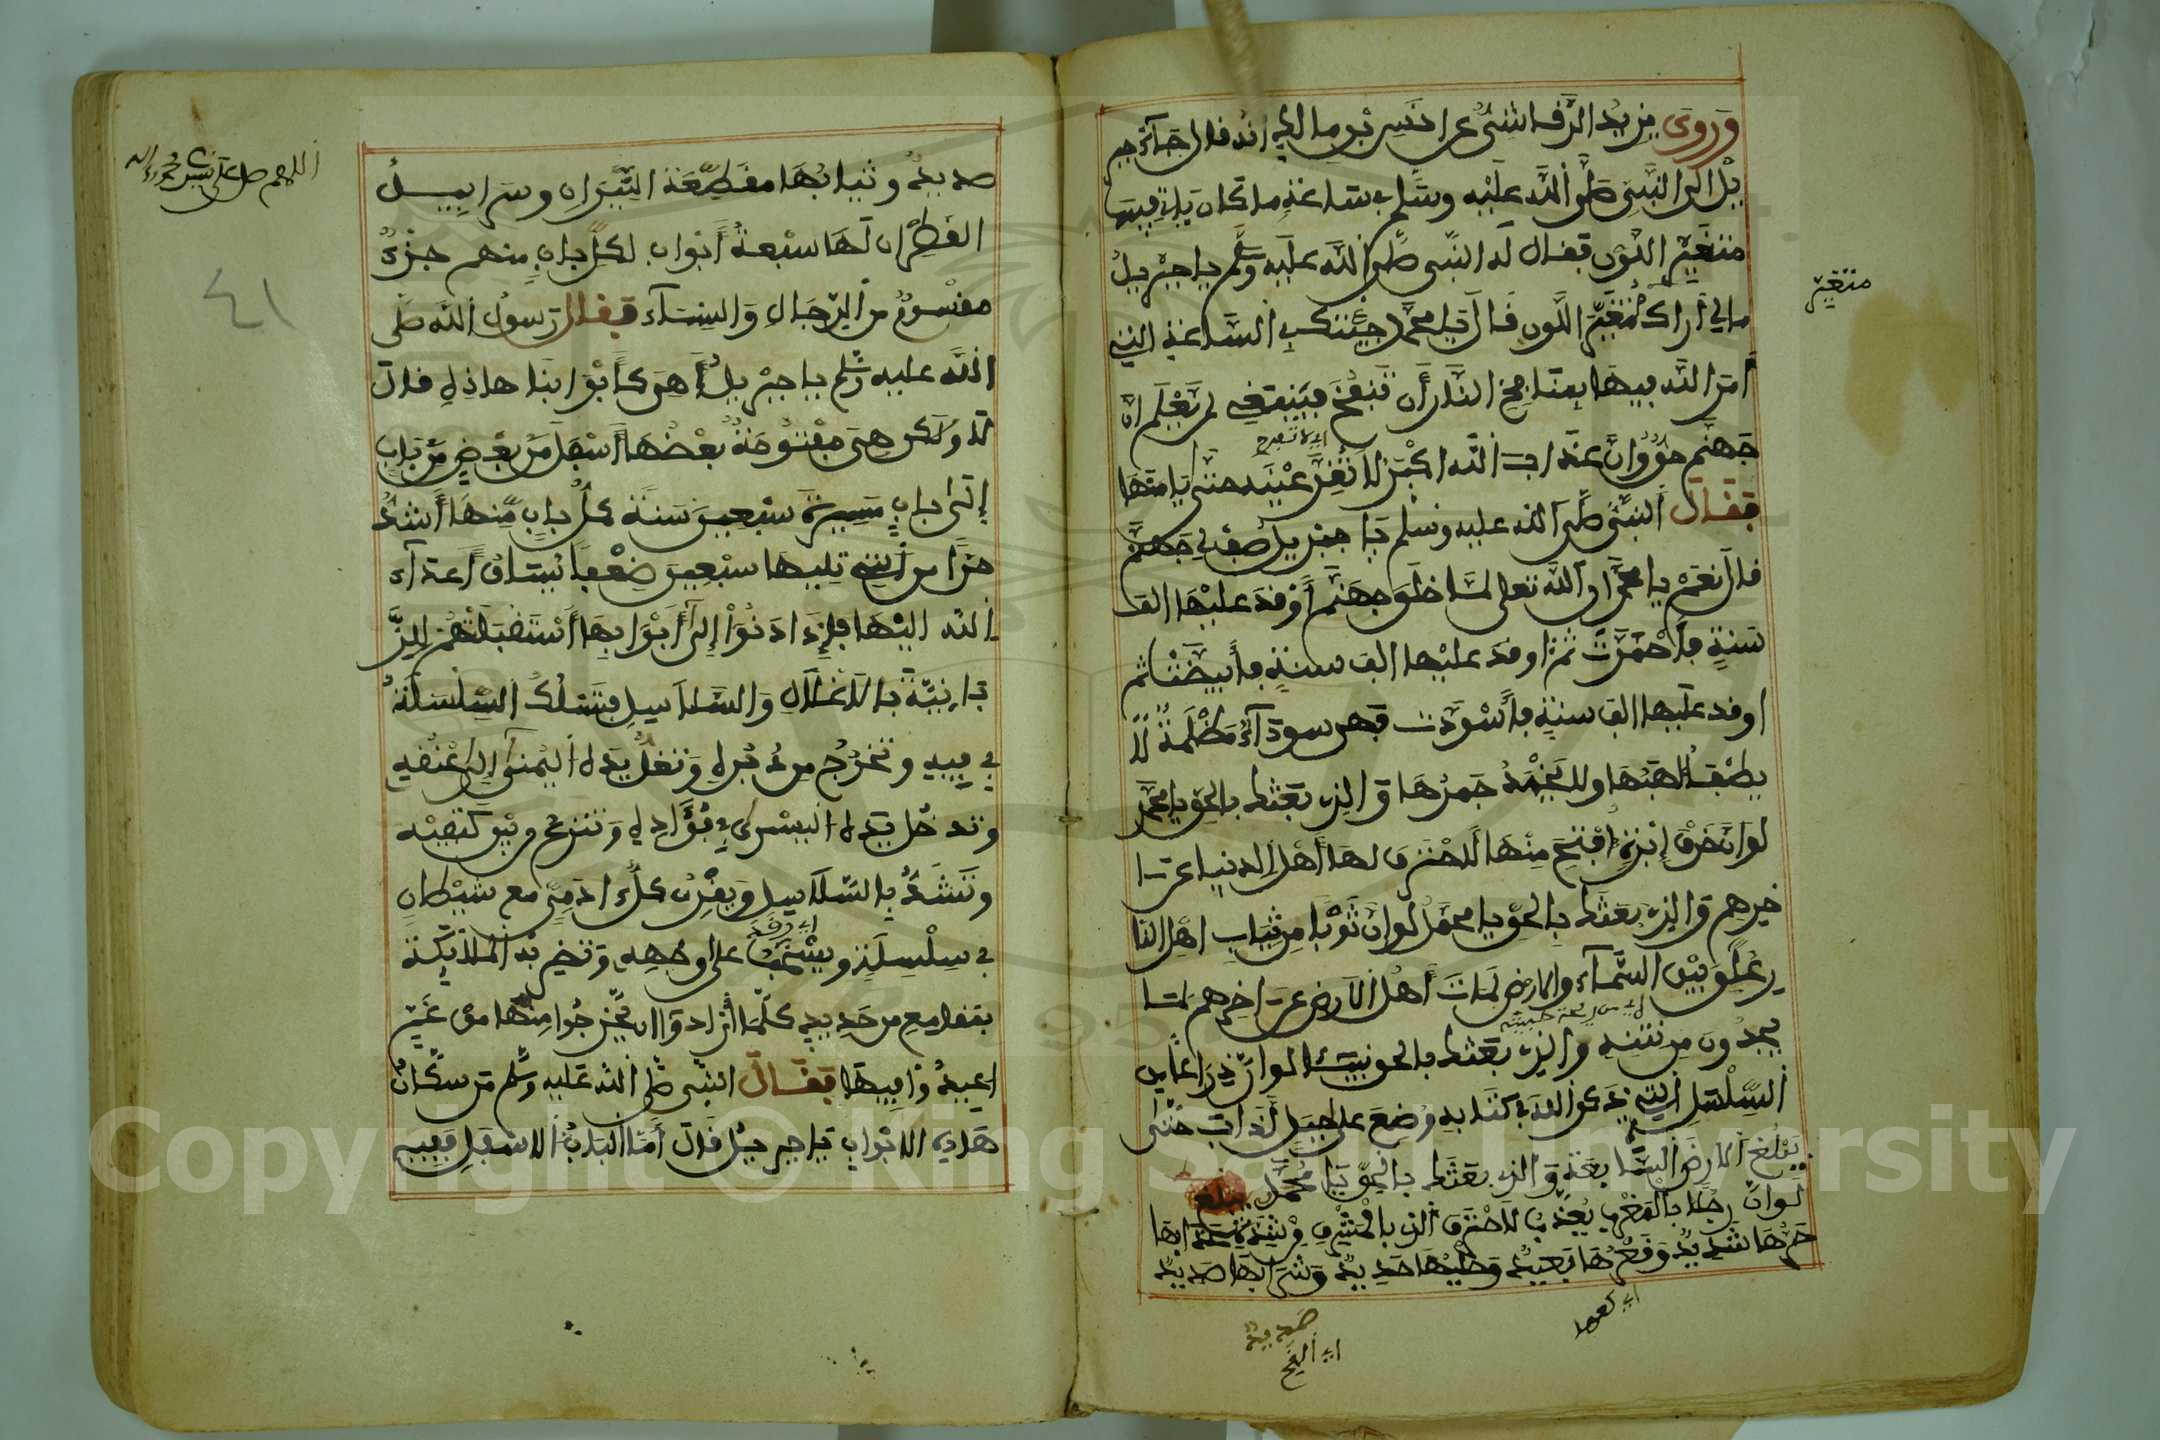 وروى يزيد الرقاشي عن انس بن مالك انه قال جآء جبر
يل الى النبي صلى الله عليه وسلم في ساعة ما كان ياتي فيها
متغير اللون فقال له النبي صلى الله عليه وسلم يا جبريل
متغير
مالي أراك متغير اللون قال يا محمد جيئتك في الساعة التي
أمر الله فيها بمنافخ النار أن تنفخ فينبغي لمن يعلم ان
جهنم حق وان عذاب الله اكبر لا تقر عينيه حتى يامنها
اي لا تفرح
فقال النبي صلى الله عليه وسلم يا جبريل صف لي جهنم
قال نعم يا محمد ان الله تعالى لما خلق جهنم أوقد عليها الف
سنة فاحمرت ثم اوقد عليها الف سنة فابيضت ثم
اوقد عليها الف سنة فاسودت فهي سودآء مظلمة لا
يطفأ لهبها ولا يخمد جمرها والذي بعثك بالحق يا محمد
لو ان خرق إبرة افتح منها لاحترق لها أهل الدنيا عن ا
خرهم والذي بعثك بالحق يا محمد لو ان ثوبا من ثياب اهل النا
ر علق بين السمآء والارض لمات أهل الارض عن اخرهم لما
يجدون من نتنه والذي بعثك بالحق نبيئا لو ان ذراعا من
اي من ريحة خبيثة
السلسل التي ذكر الله في كتابه وضع على جبل لذاب حتى
يبلغ الارض السابعة والذي بعثك بالحق يا محمد
لو ان رجلا بالمغرب يعذب لاحترق الذي بالمشرق من شدة عذابها
حرها شديد وقعرها بعيد وحليها حديد وشرابها صديد
اي عمقها
صديد
اي القيح
اللهم صل على سيدنا محمد وءاله
٤١
صديد وثيابها مقطعة النيران وسرابيل
القطران لها سبعة أبواب لكل باب منهم جزء
مقسوم من الرجال والنسآء فقال رسول الله صلى
الله عليه وسلم يا جبريل أهي كأبوابنا هاذه قال
لا ولكن هي مفتوحة بعضها أسفل من بعض من باب
إلى باب مسيرة سبعين سنة كل باب منها أشد
حرا من التي تليها سبعين ضعفا يساق أعدآء
الله اليها فإذا دنوا إلى أبوابها أستقبلتهم الز
بانية بالاغلال والسلاسيل فتسلك السلسلة
في فيه وتخرج من دبره وتغل يده اليمنى إلى عنقه
وتدخل يده اليسرى في فؤاده وتنزع من بين كتفيه
وتشد بالسلاسيل ويقرن كل ادمي مع شيطان
في سلسلة ويسحب على وجهه وتضربه الملائكة
بمقامع من حديد كلما أرادوا ان يخرجوا منها من غم
اعيدوا فيها فقال النبي صلى الله عليه وسلم من سكان
هذه الابواب يا جبريل قال أما الباب الاسفل ففيه